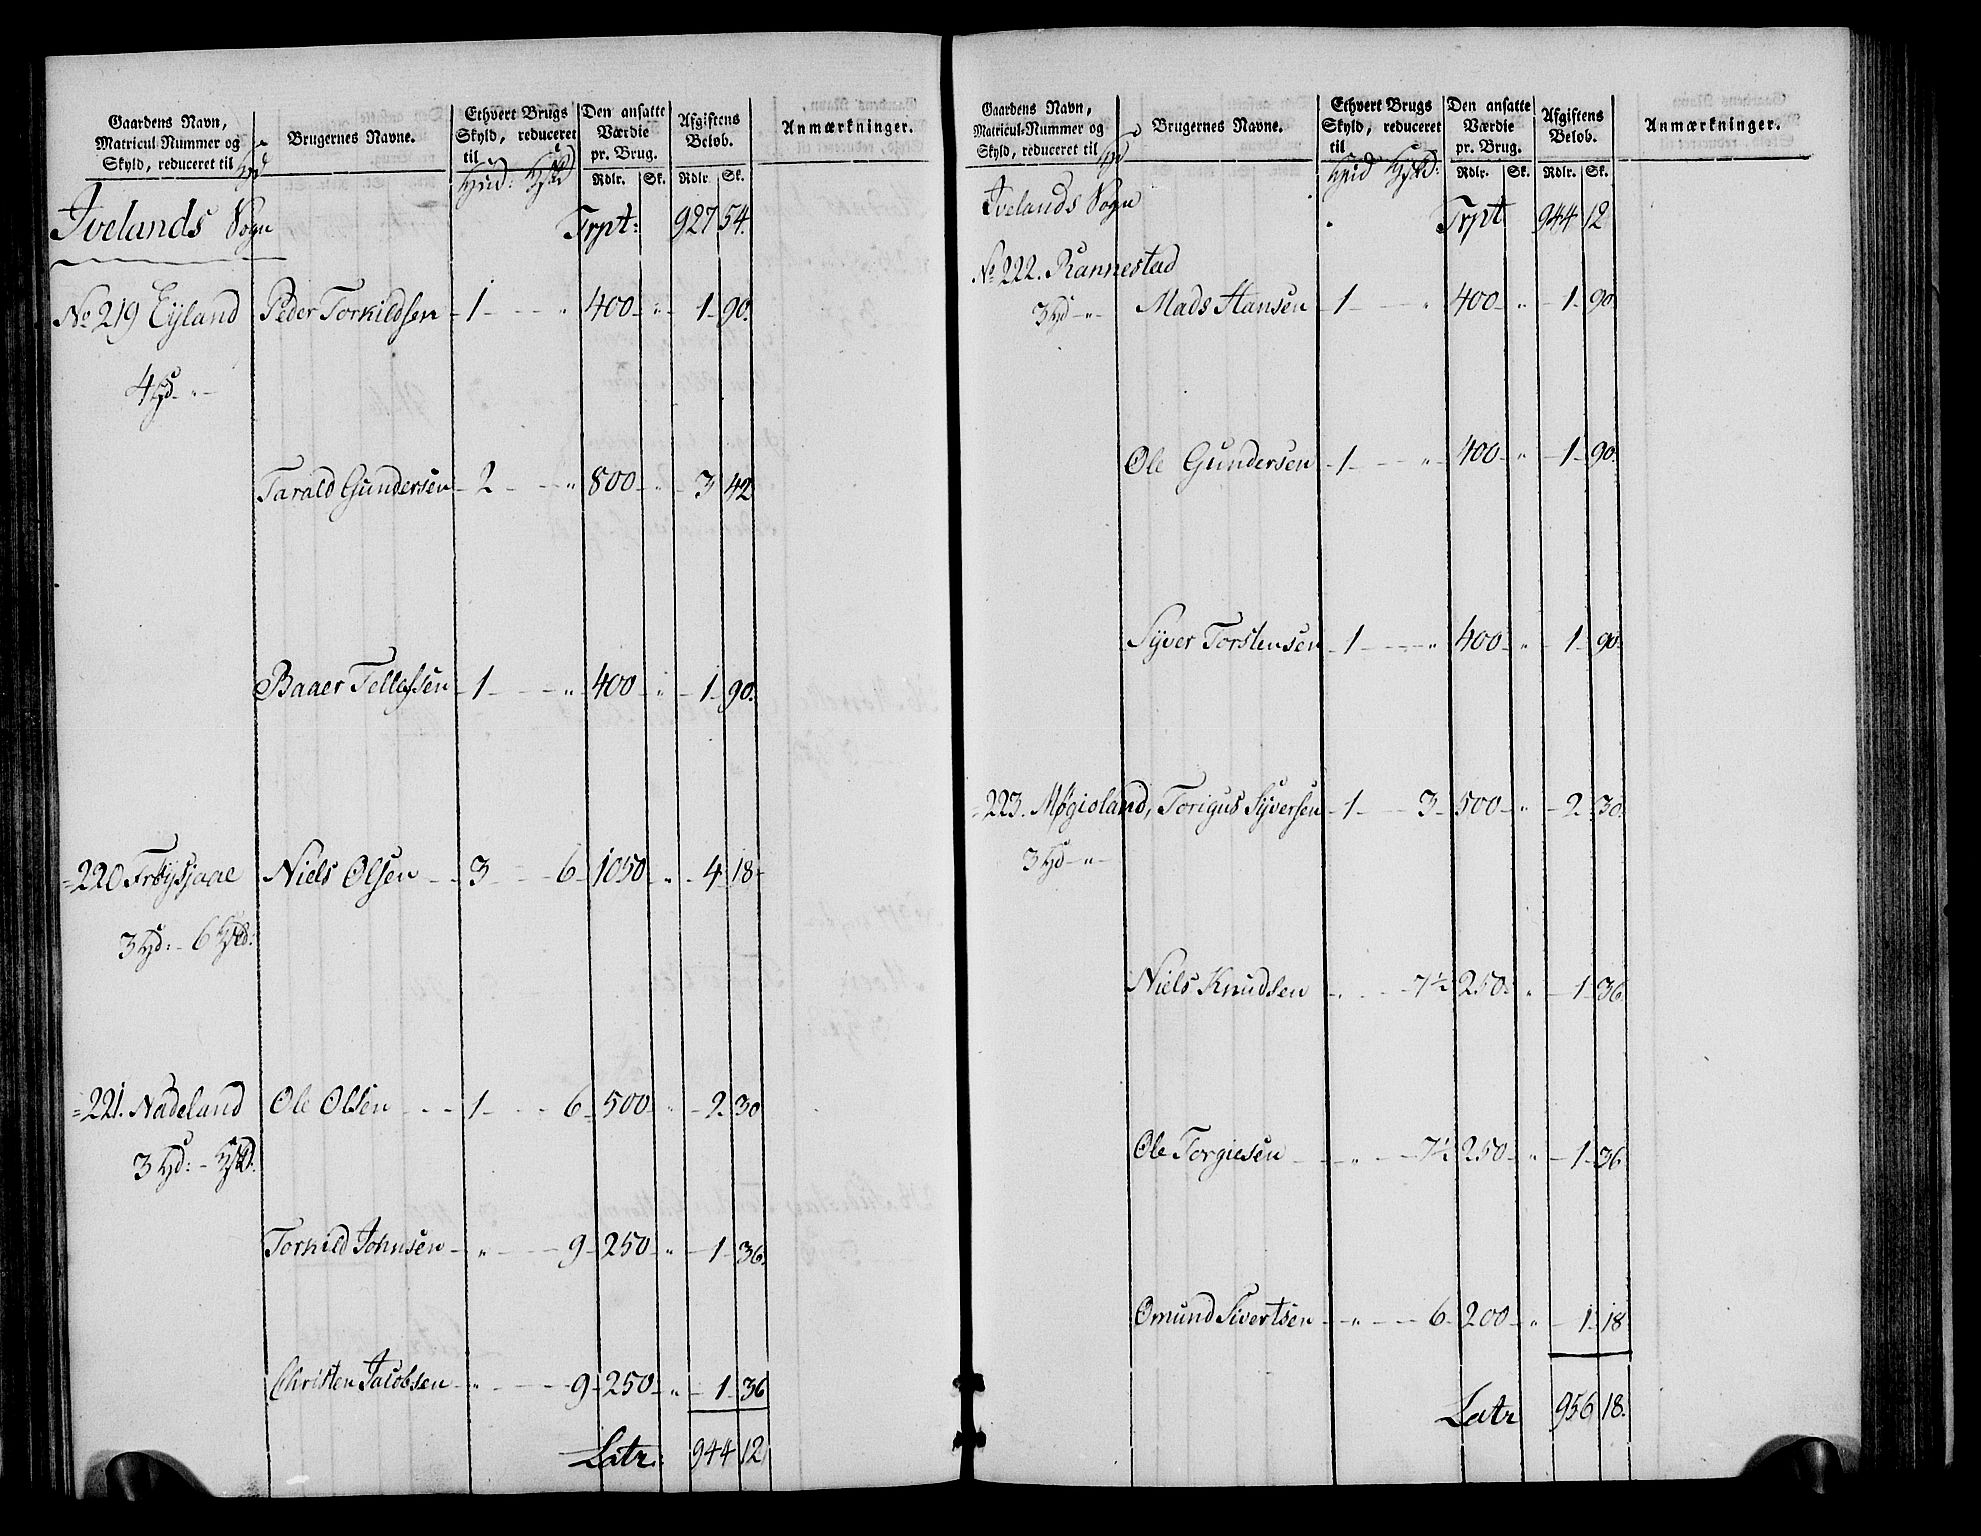 Gaardens Navn, Matricul-Nummer og Skyld, reduceret til Hd
Brugernes Navne.
Ethvert Brugs Skyld, reduceret til Huid: Hskd
Den ansatte Værdie pr. Brug. Rdlr. Sk.
Afgiftens Beløb. Rdlr. Sk.
Anmærkninger.
Ivelands Sogn Trpt: 927 54.
No 219 Eyland Peder Torkildsen - 1 - - - " 400 - " - 1 - 90.
4 Hd - " -
Tarald Gundersen - 2 - - - " 800 - " - 3 42
Baaer Tellefsen - 1 - - - " 400 - " - 1 - 90.
= 220 Frøysaae Niels Olsen - - 3 - - 6 - 1050 - " - 4 - 18 -
3 Hd: - 6 Hskd:
= 221. Nadeland Ole Olsen - - - 1 - - - 6 - 500 - " - 2 - 30
3 Hd: - Hskd:
Torkild Johnsen - " - - - 9 - 250 - " - 1 - 36.
Christen Jacobsen - " - - - 9 - 250 - " - 1 - 36
Latr: 944 12
Gaardens Navn, Matricul-Nummer og Skyld, reduceret til Hd
Brugernes Navne.
Ethvert Brugs Skyld, reduceret til Huid Hskd:
Den ansatte Værdie pr. Brug. Rdlr. Sk.
Afgiftens Beløb. Rdlr. Sk.
Anmærkninger.
Ivelands Sogn Trpt 944 12
No 222. Rannestad
3 Hd - " - Mads Hansen - 1 - - - " 400 - " - 1 - 90.
Ole Gundersen - 1 - - - " - 400 - " - 1 - 90.
Syver Torstensen - 1 - - - " - 400 - " - 1 - 90.
= 223. Møgioland, Torigus Syversen - 1 - - - 3 - 500 - " - 2 - 30.
3 Hd - " -
Niels Knudsen - " - - - 7½ 250 - " - 1 - 36.
Ole Torgiesen - - " - - - 7½ 250 - " - 1 - 36
Omund Sivertsen - - " - - - 6 - 200 - " - 1 - 18
Latr 956 18.